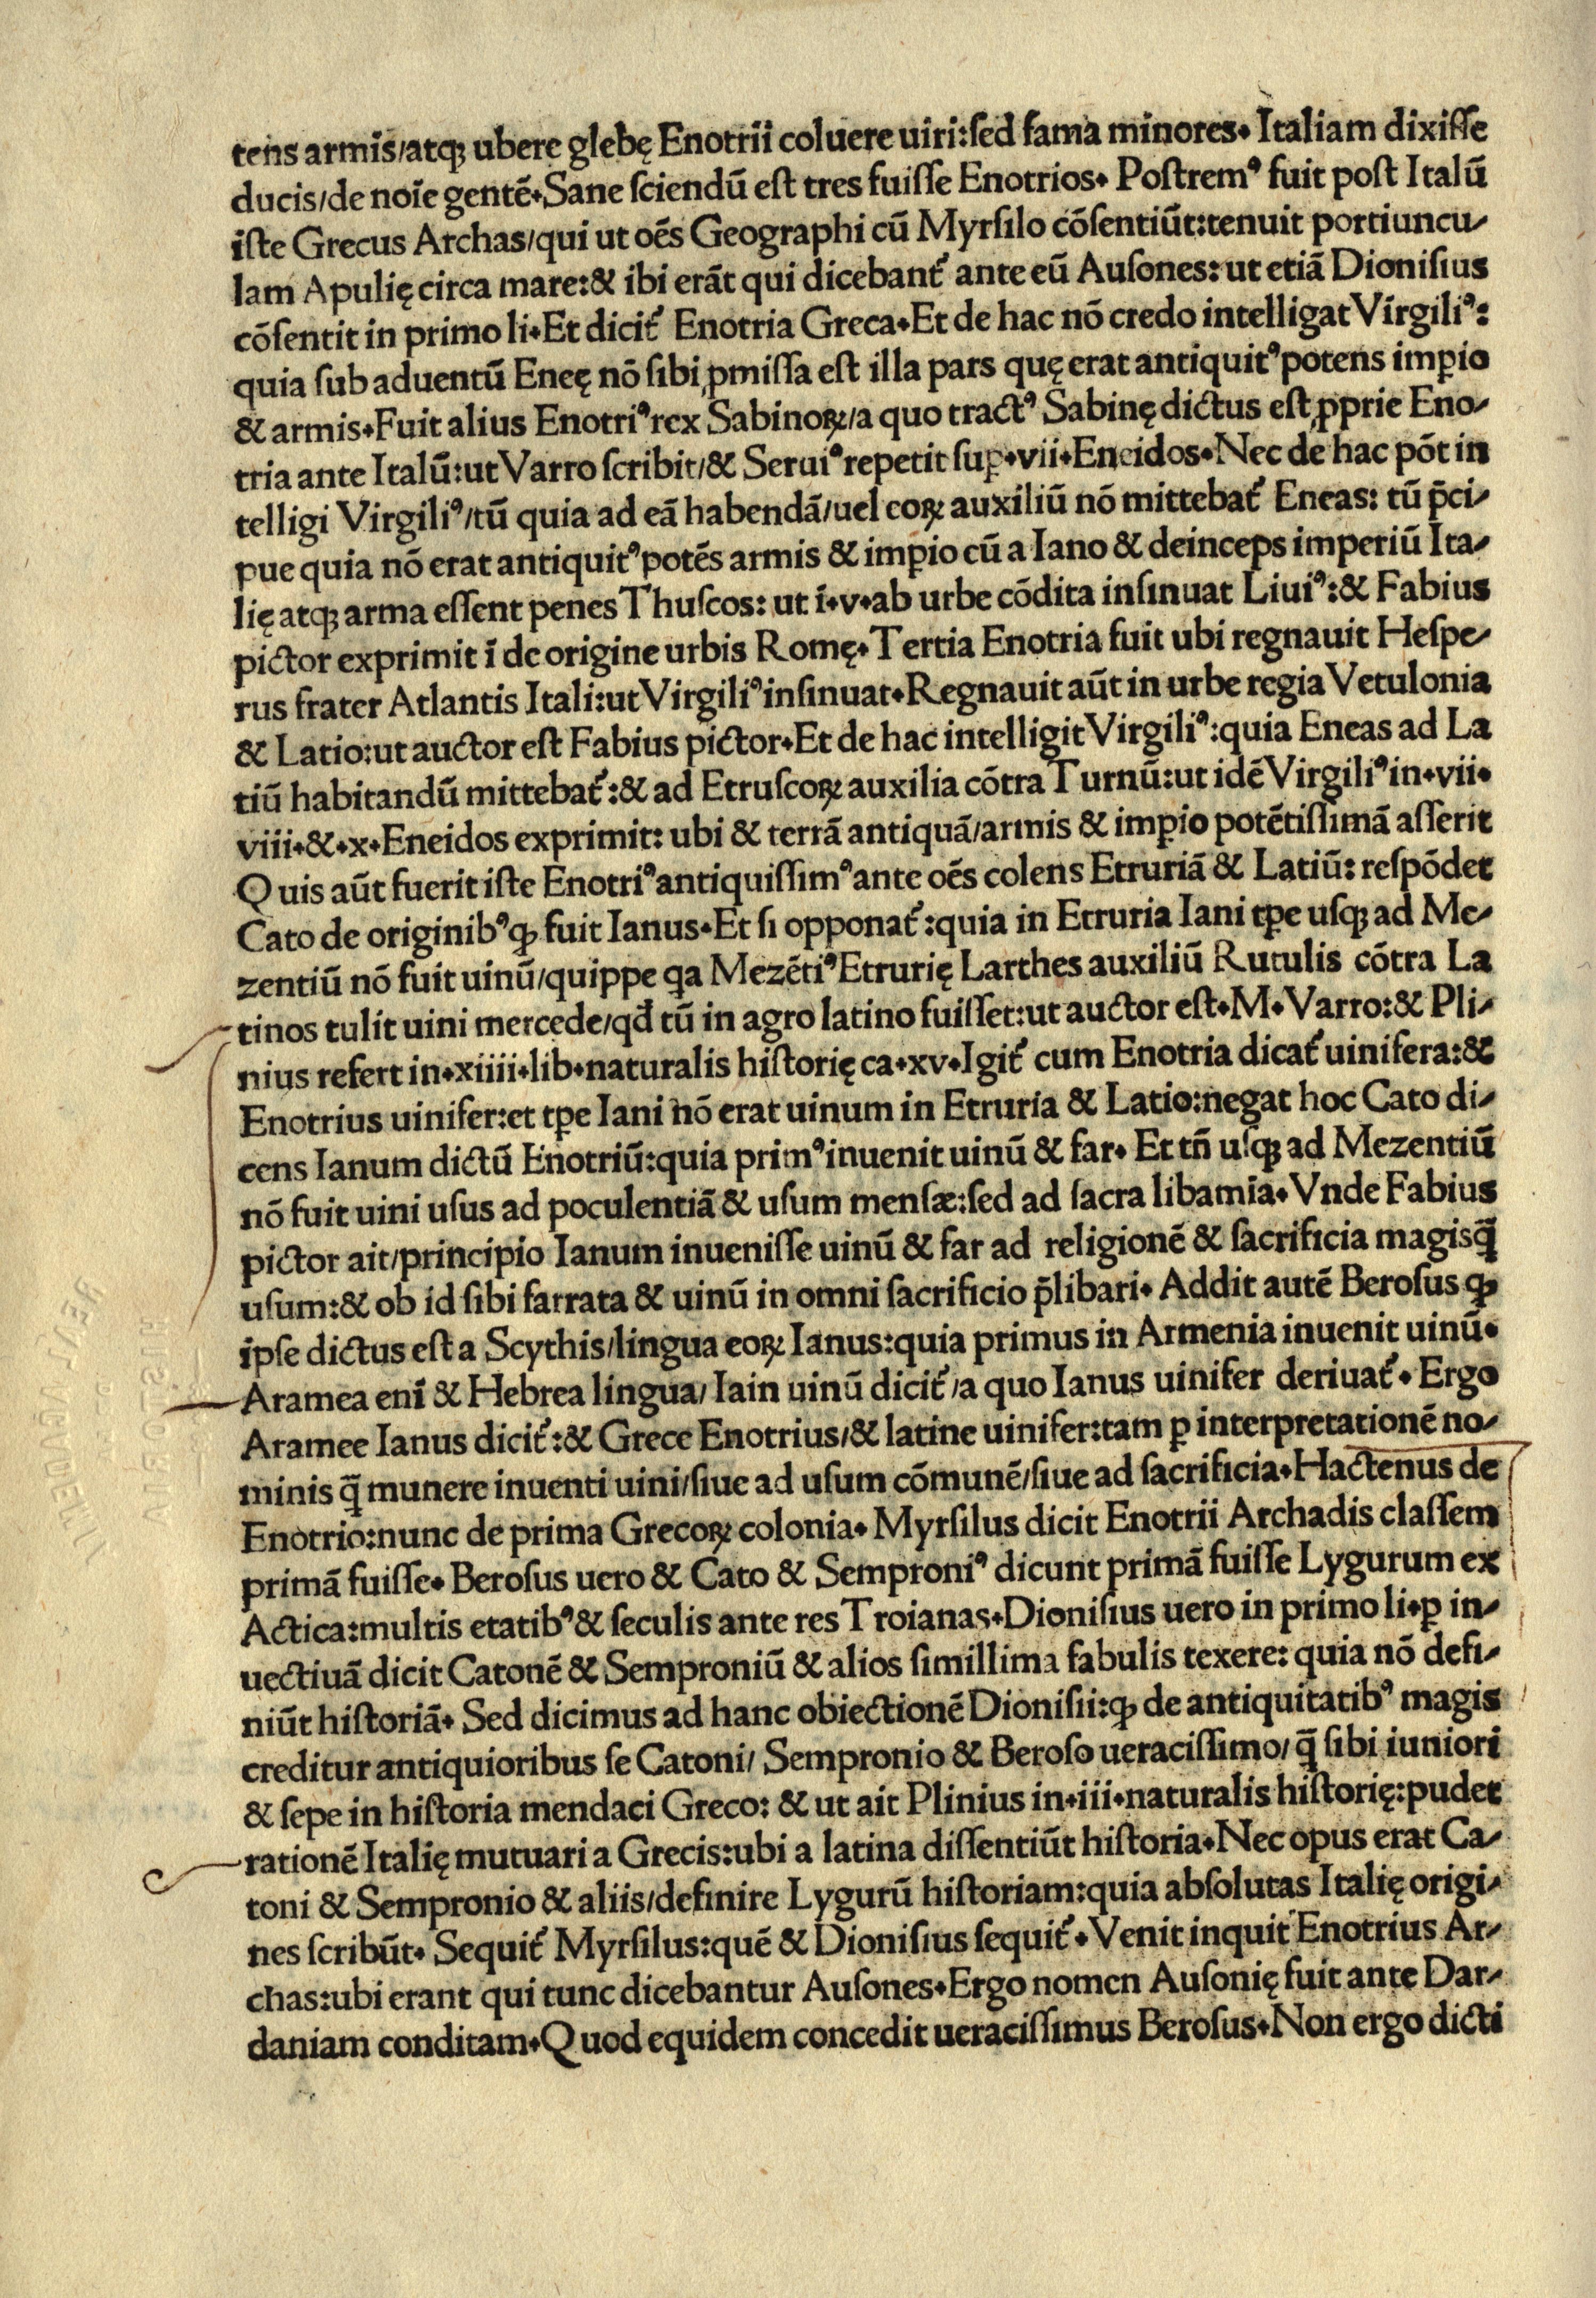 tens armis/atqꝫ ubere glebę Enotrii coluere uiri:sed fama minores. Italiam dixisse
ducis/de noīe gentē.Sane sciendū est tres fuisse Enotrios. Postremꝰ fuit post Italū
iste Grecus Archas/qui ut oēs Geographi cū Myrsilo cōsentiūt:tenuit portiuncu/
lam Apulię circa mare:& ibi erāt qui dicebant᷑ ante eū Ausones: ut etiā Dionisius
cōsentit in primo li.Et dicit᷑ Enotria Greca.Et de hac nō credo intelligat Virgiliꝰ:
quia sub aduentū Eneę nō sibi ꝓmissa est illa pars quę erat antiquitꝰ potens imꝑio
& armis.Fuit alius Enotriꝰ rex Sabinoꝝ/a quo tractꝰ Sabinę dictus est ꝓprie Eno/
tria ante Italū:ut Varro scribit/& Seruiꝰ repetit suꝑ.vii.Eneidos.Nec de hac pōt in
telligi Virgiliꝰ/tū quia ad eā habendā/uel eoꝝ auxiliū nō mittebat᷑ Eneas: tū p̄ci/
pue quia nō erat antiquitꝰ potēs armis & imꝑio cū a Iano & deinceps imperiū Ita/
lię atqꝫ arma essent penes Thuscos: ut ī.v.ab urbe cōdita insinuat Liuiꝰ:& Fabius
pictor exprimit ī de origine urbis Romę. Tertia Enotria fuit ubi regnauit Hespe/
rus frater Atlantis Itali:ut Virgiliꝰ insinuat.Regnauit aūt in urbe regia Vetulonia
& Latio:ut auctor est Fabius pictor.Et de hac intelligit Virgiliꝰ:quia Eneas ad La
tiū habitandū mittebat᷑:& ad Etruscoꝝ auxilia cōtra Turnū:ut idē Virgiliꝰ in.vii.
viii.&.x.Eneidos exprimit: ubi & terrā antiquā/armis & imꝑio potētissimā asserit
Quis aūt fuerit iste Enotriꝰ antiquissimꝰ ante oēs colens Etruriā & Latiū: respōdet
Cato de originibꝰ ꝙ fuit Ianus.Et si opponat᷑:quia in Etruria Iani tꝑe usqꝫ ad Me/
zentiū nō fuit uinū/quippe qa Mezētiꝰ Etrurię Larthes auxiliū Rutulis cōtra La
tinos tulit uini mercede/qđ tū in agro latino fuisset:ut auctor est.M.Varro:& Pli/
nius refert in.xiiii.lib.naturalis historię ca.xv.Igit᷑ cum Enotria dicat᷑ uinifera:&
Enotrius uinifer:et tꝑe Iani nō erat uinum in Etruria & Latio:negat hoc Cato di/
cens Ianum dictū Enotriū:quia primꝰ inuenit uinū & far. Et tn̄ usqꝫ ad Mezentiū
nō fuit uini usus ad poculentiā & usum mensæ:sed ad sacra libamīa. Vnde Fabius
pictor ait/principio Ianum inuenisse uinū & far ad religionē & sacrificia magisq̄
usum:& ob id sibi farrata & uinū in omni sacrificio p̄libari. Addit autē Berosus ꝙ
ipse dictus est a Scythis/lingua eoꝝ Ianus:quia primus in Armenia inuenit uinū.
Aramea enī & Hebrea lingua/ Iain uinū dicit᷑/a quo Ianus uinifer deriuat᷑. Ergo
Aramee Ianus dicit᷑:& Grece Enotrius/& latine uinifer:tam ꝑ interpretationē no/
minis q̄ munere inuenti uini/siue ad usum cōmunē/siue ad sacrificia.Hactenus de
Enotrio:nunc de prima Grecoꝝ colonia. Myrsilus dicit Enotrii Archadis classem
primā fuisse. Berosus uero & Cato & Semproniꝰ dicunt primā fuisse Lygurum ex
Actica:multis etatibꝰ & seculis ante res Troianas.Dionisius uero in primo li.ꝑ in/
uectiuā dicit Catonē & Semproniū & alios simillima fabulis texere: quia nō defi/
niūt historiā. Sed dicimus ad hanc obiectionē Dionisii:ꝙ de antiquitatibꝰ magis
creditur antiquioribus se Catoni/ Sempronio & Beroso ueracissimo/ q̄ sibi iuniori
& sepe in historia mendaci Greco: & ut ait Plinius in.iii.naturalis historię:pudet
rationē Italię mutuari a Grecis:ubi a latina dissentiūt historia.Nec opus erat Ca/
toni & Sempronio & aliis/definire Lygurū historiam:quia absolutas Italię origi/
nes scribūt. Sequit᷑ Myrsilus:quē & Dionisius sequit᷑. Venit inquit Enotrius Ar/
chas:ubi erant qui tunc dicebantur Ausones.Ergo nomen Ausonię fuit ante Dar/
daniam conditam.Quod equidem concedit ueracissimus Berosus.Non ergo dicti